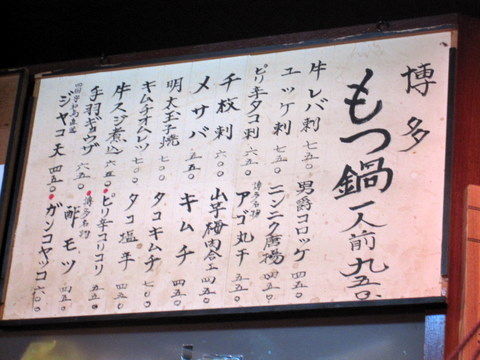 博多
もつ鍋 一人前 九五〇
牛レバ刺 七五〇
男爵コロッケ 四五〇
ユッケ刺 七五〇
ニンニク広場 四五〇
ピリ辛タコ刺 六五〇
博多名物 アゴ丸干 四五〇
千枚刺 六〇〇
山芋梅肉合え 四五〇
メサバ 五五〇
キムチ 四五〇
明太玉子焼 七〇〇
タコキムチ 七〇〇
キムチオムレツ 七〇〇
タコ塩辛 四五〇
牛スジ煮込 六五〇
ピリ辛コリコリ 五五〇
手羽ギョウザ 六五〇
博多名物 酢モツ 四五〇
ジャコ天 四五〇
ガンコヤッコ 六〇〇